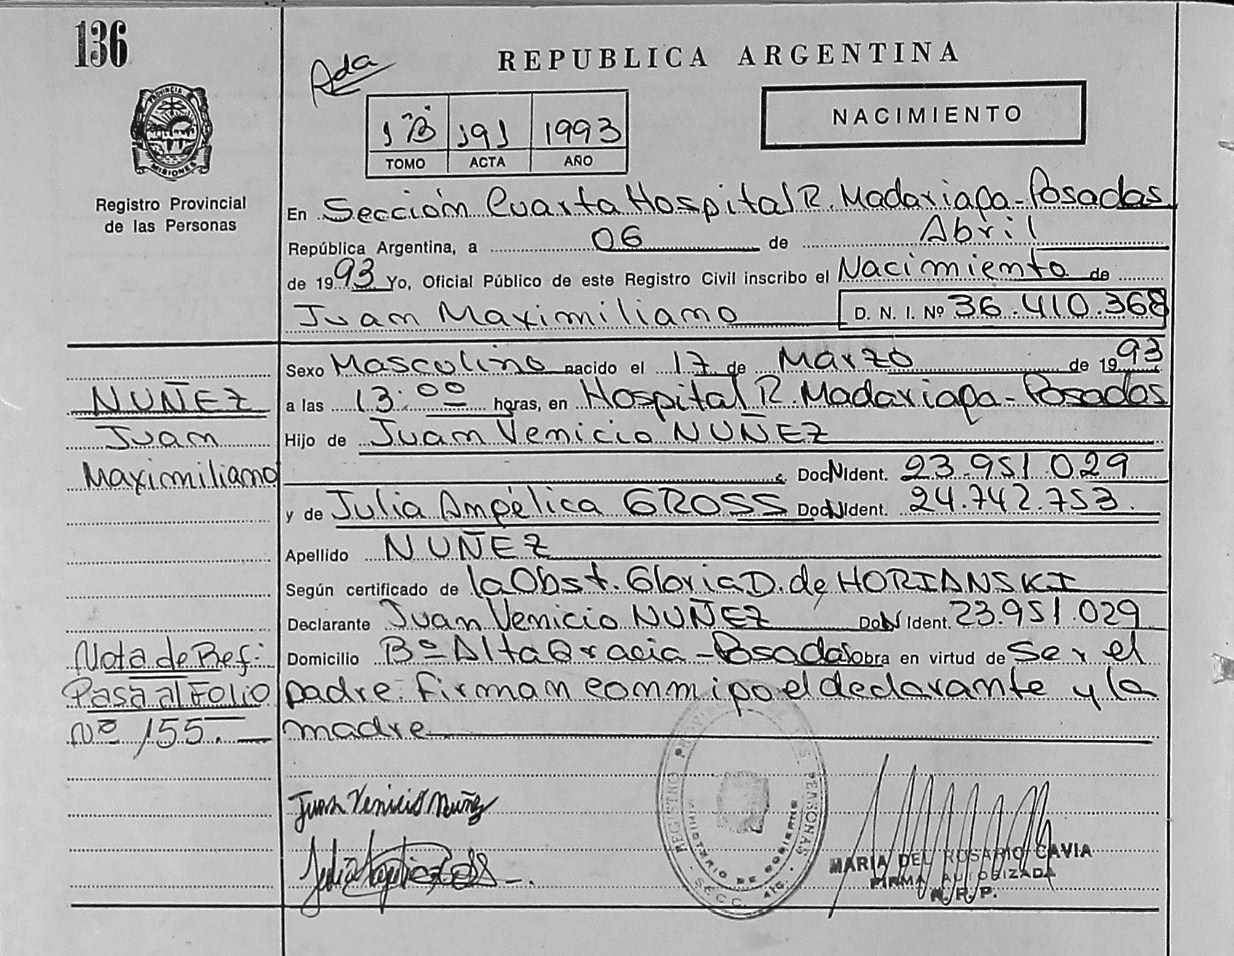 136
Ada
REPUBLICA ARGENTINA
NACIMIENTO
1 "B" 191 1993
TOMO ACTA AÑO
PROVINCIA DE MISIONES
Registro Provincial
de las Personas
En Sección Cuarta Hospital R. Madariaga - Posadas
República Argentina, a 06 de Abril
de 1993 Yo, Oficial Público de este Registro Civil inscribo el Nacimiento de
Juan Maximiliano D. N. I. Nº 36.410.368
Sexo Masculino nacido el 17 de Marzo de 1993
NUÑEZ
a las 13:00 horas, en Hospital R. Madariaga - Posadas
Juan
Hijo de Juan Venicio NUÑEZ
Maximiliano
Doc N Ident. 23.951.029
y de Julia Angélica GROSS Doc N Ident. 24.742.753.
Apellido NUÑEZ
Según certificado de la Obst. Gloria D. de HORIANSKI
Declarante Juan Venicio NUÑEZ Doc N Ident. 23.951.029
Nota de Ref:
Domicilio Bº Alta Gracia - Posadas obra en virtud de Ser el
Pasa al Folio
padre. Firman conmigo el declarante y la
Nº 155.-
madre
Juan Venicio Nuñez
REGISTRO PROVINCIAL DE LAS PERSONAS
MINISTERIO DE GOBIERNO
SECC. 4ta.
MARIA DEL ROSARIO CAVIA
FIRMA AUTORIZADA
R.P.P.